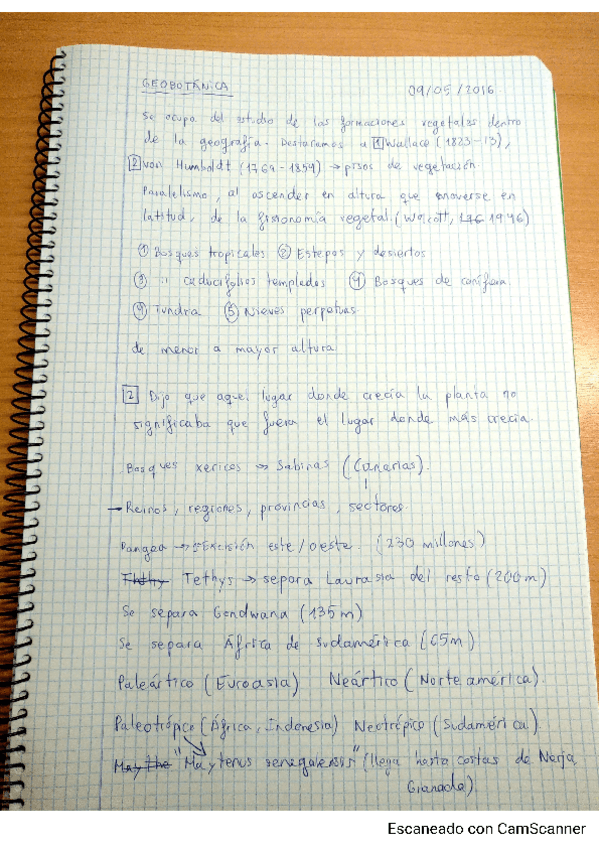 GEOBOTÁNICA 09/05/2016
Se ocupa del estudio de las formaciones vegetales dentro
de la geografía. Destaramos a 1 Wallace (1823-13),
2 von Humboldt (1769-1859) → pisos de vegetación.
Paralelismo, al ascender en altura que moverse en
latitud, de la fisionomía vegetal. (1946)
① Bosques tropicales ② Estepas y desiertos
③ " caducifolios templados ④ Bosques de conífera.
⑤ Nieves perpetuas
Tundra
de menor a mayor altura
2 Dijo que aquel lugar donde crecía la planta no
significaba que fuera el lugar donde más crecía.
Bosques xéricos → Sabinas (Canarias).
→ Reinos, regiones, provincias, sectores.
Pangea → Escisión este/oeste. (230 millones)
Tethys → separa Laurasia del resto (200m)
Se separa Gondwana (135 m)
Se separa África de Sudamérica (65m)
Paleártico (Euroasia) Neártico (Norte américa).
Paleotrópico (África, Indonesia) Neotrópico (Sudamérica).
"Maytenus senegalensis" (llega hasta costas de Nerja,
Granada).
Escaneado con CamScanner